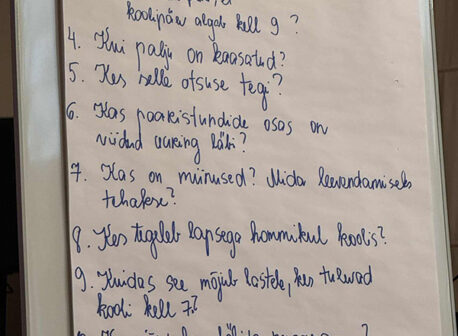 koolipäev algab kell 9?
4. Kui palju on kaasatud?
5. Kes selle otsuse tegi?
6. Kas paaristundide osas on
viidud uuring läbi?
7. Kas on miinused? Mida leevendamiseks
tehakse?
8. Kes tegeleb lapsega hommikul koolis?
9. Kuidas see mõjub lastele, kes tulevad
kooli kell 7?